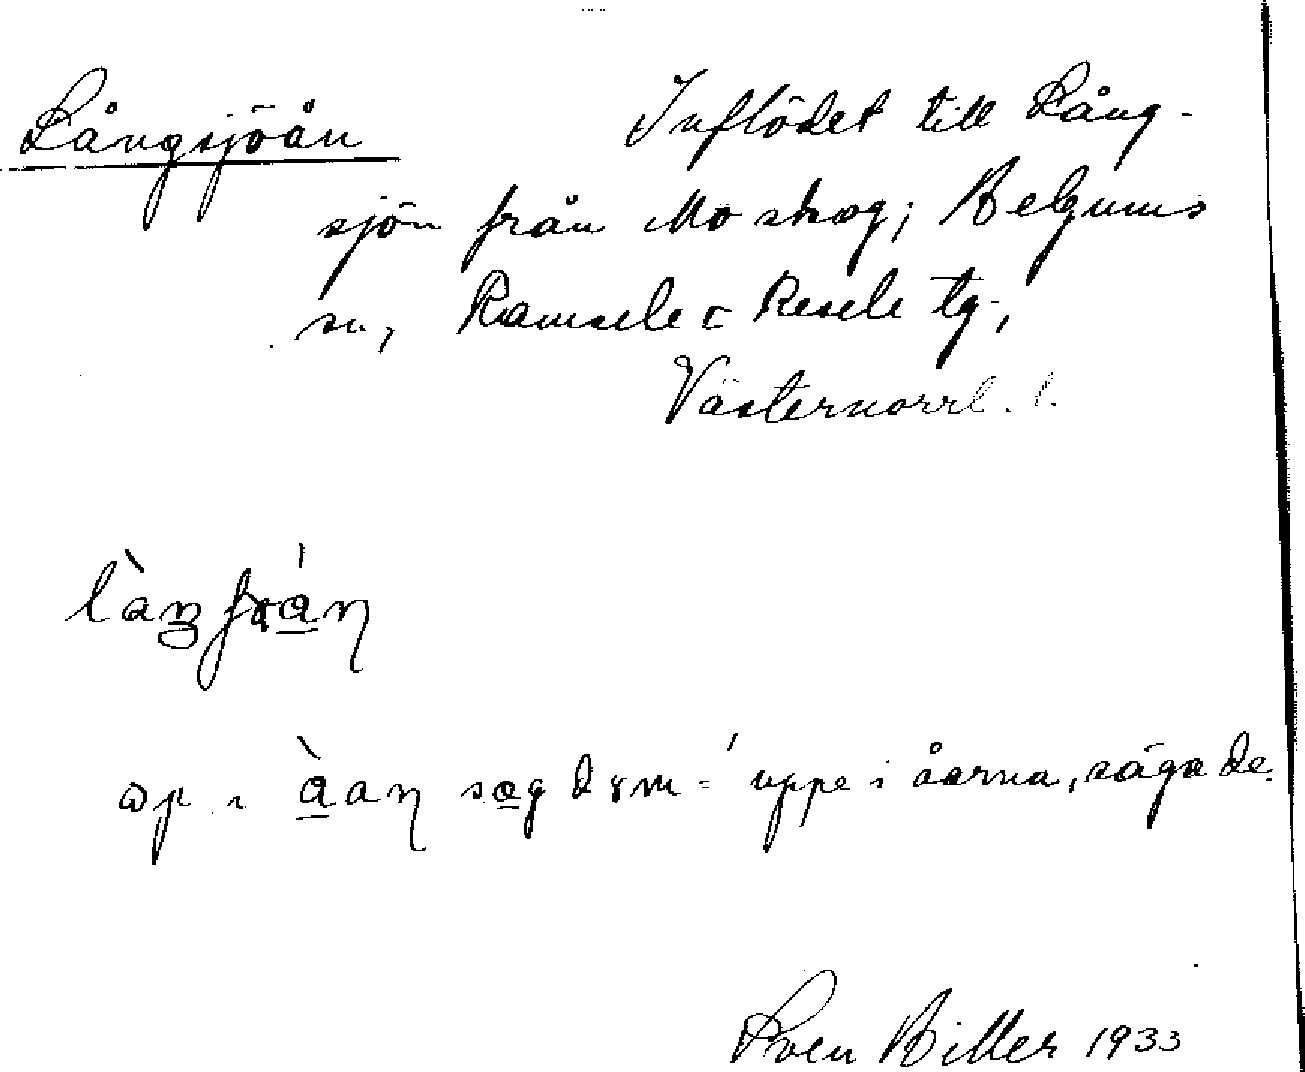 Långsjöån Inflödet till Lång-
sjön från Mo skog; Helgums
sn, Ramsele o Resele tg.,
Västernorrl. l.
uppe i åarna, säga de.
Sven Hiller 1933